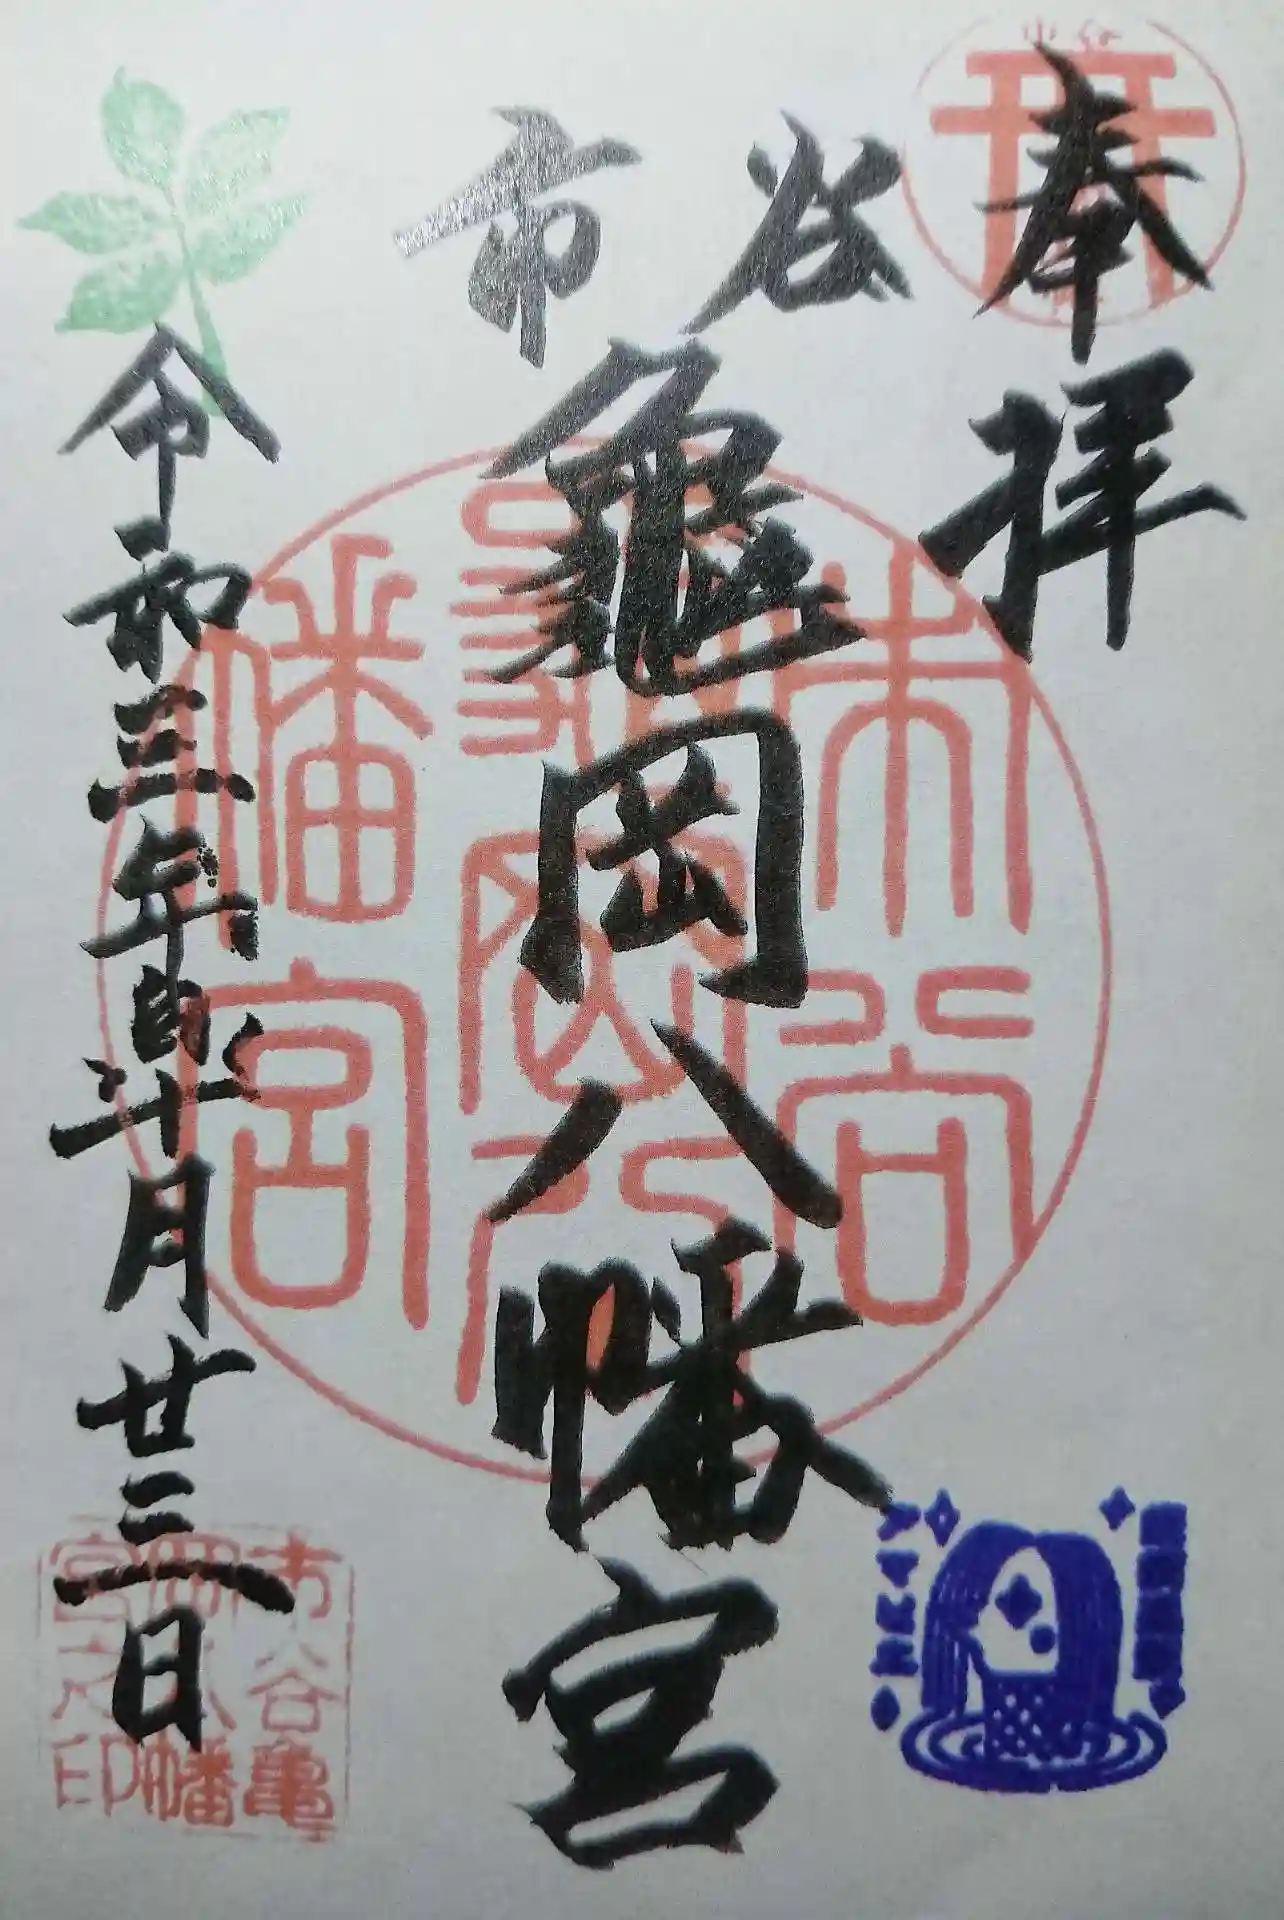 奉拝
市谷
亀岡八幡宮
令和三年皐月廿三日
市谷
亀岡八
幡宮
市谷亀
岡八幡
宮之印